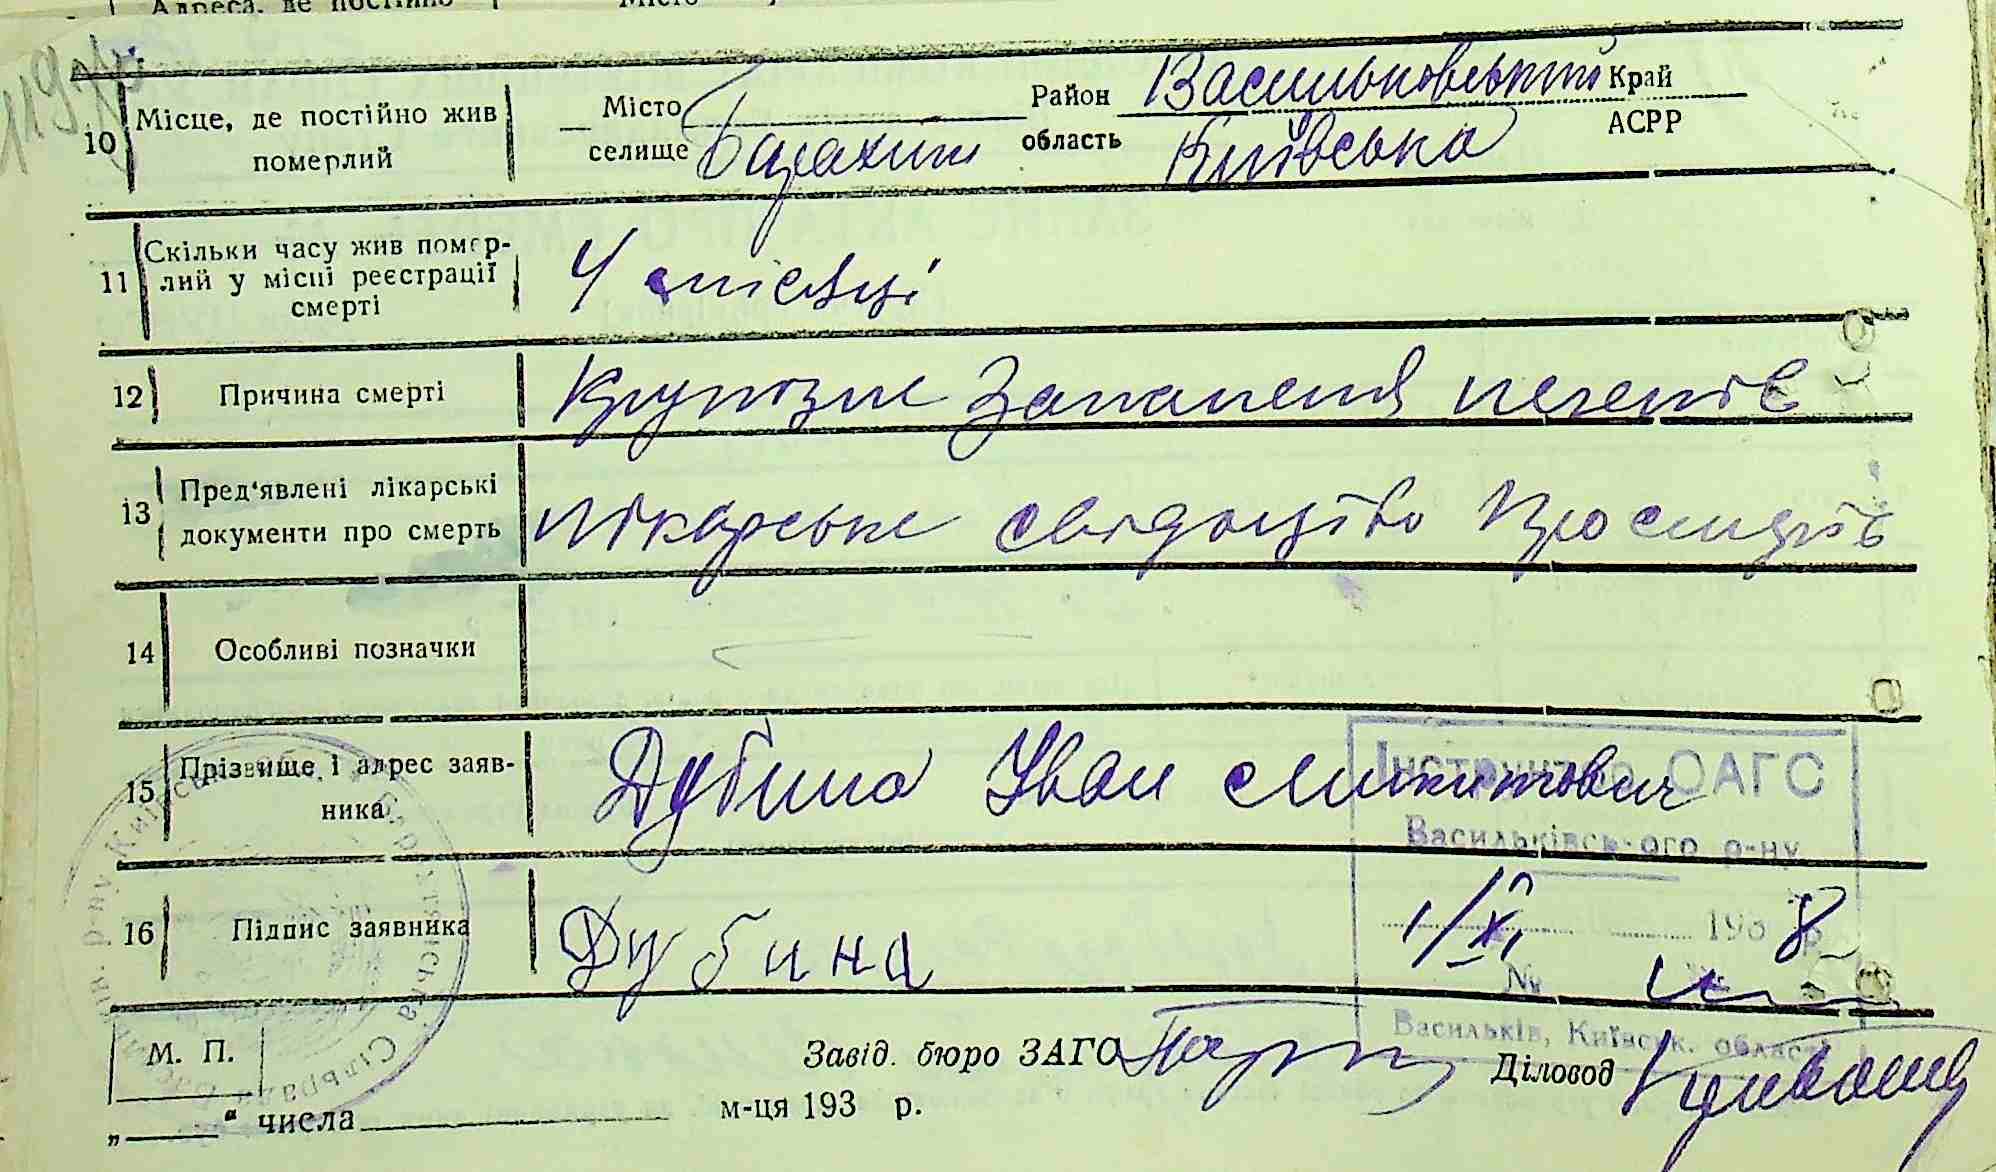 Адреса, де постійно Місто
10 Місце, де постійно жив померлий
Місто селище Барахти
Район Васильковський Край
область Київська АСРР
11 Скільки часу жив помер-
лий у місці реєстрації
смерті
4 місяці
12 Причина смерті
Крупозне Запаленя легенів
13 Пред'явлені лікарські
документи про смерть
лікарське свідоцтво Про смерть
14 Особливі позначки
15 Прізвище і адрес заяв-
ника
Дубина Іван Микитович
16 Підпис заявника
Дубина
Інструктор ОАГС
Васильківського р-ну
1/XI 1938 р.
№
Васильків, Київськ. області
М. П.
Завід. бюро ЗАГС
Діловод
„ " числа м-ця 193 р.